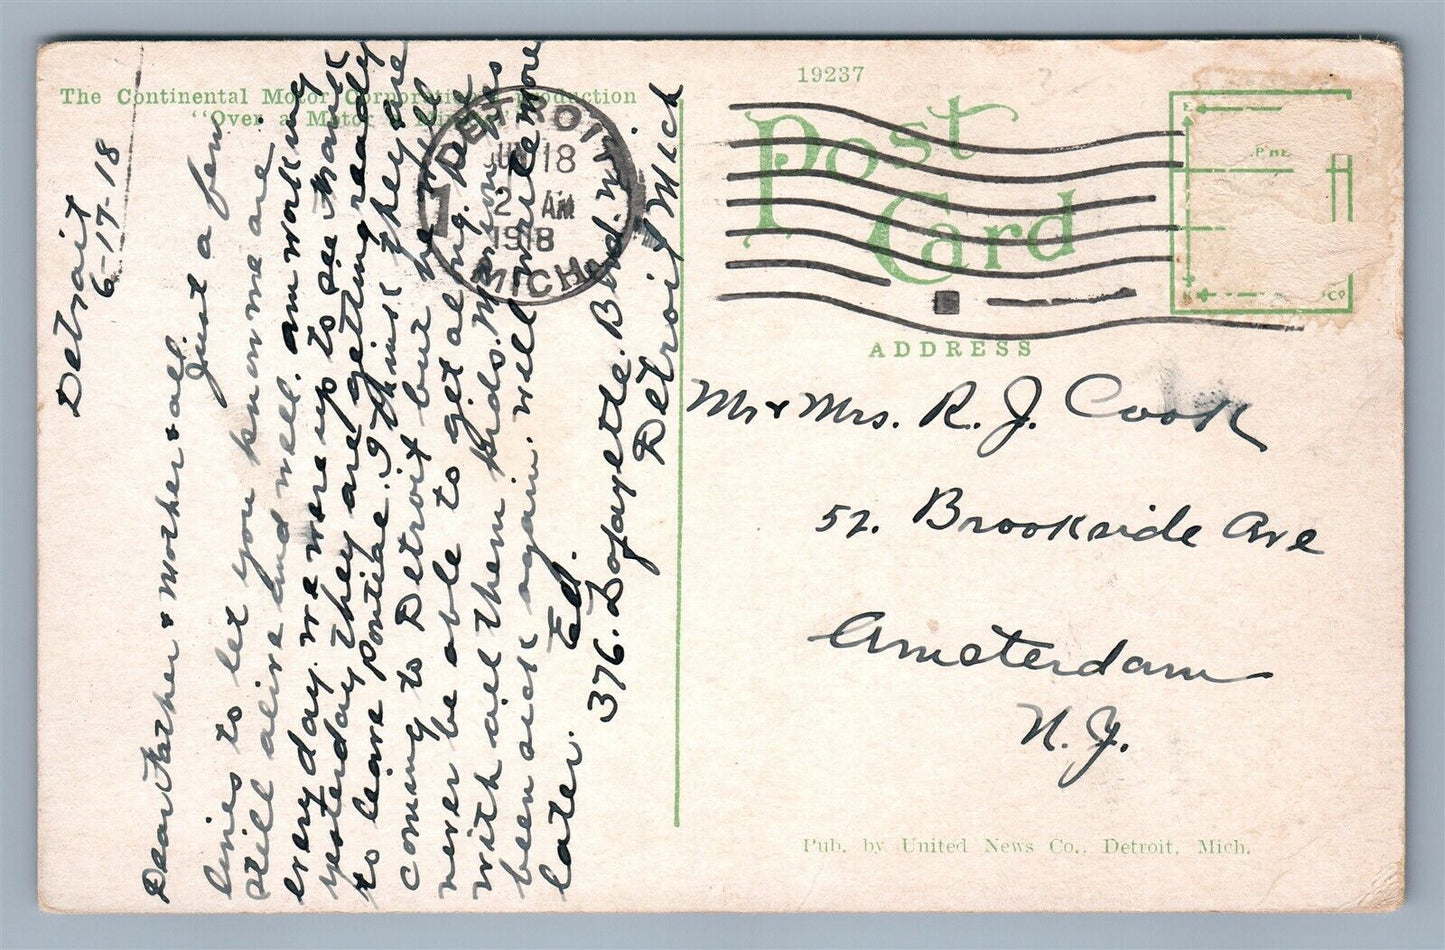 19237
The Continental Motor Corporation Production
"Over a Motor a Minute"
Post Card
DETROIT
JUN 18
2 AM
1918
MICH.
1
ADDRESS
Mr & Mrs. R. J. Cook
52. Brookside Ave
Amsterdam
N. Y.
Pub. by United News Co., Detroit, Mich.
Detroit
6-17-18
Dear Father & Mother & all.
Just a few
lines to let you know we are
still alive and well. am working
every day. we were up to see Frank
yesterday they are getting ready
to leave Pontiac. I think they are
coming to Detroit but he will
never be able to get along. Here
with all them kids. Mr Simons
been sick again. will write more
later. Ed.
376. Lafayette. Blvd. W.
Detroit Mich